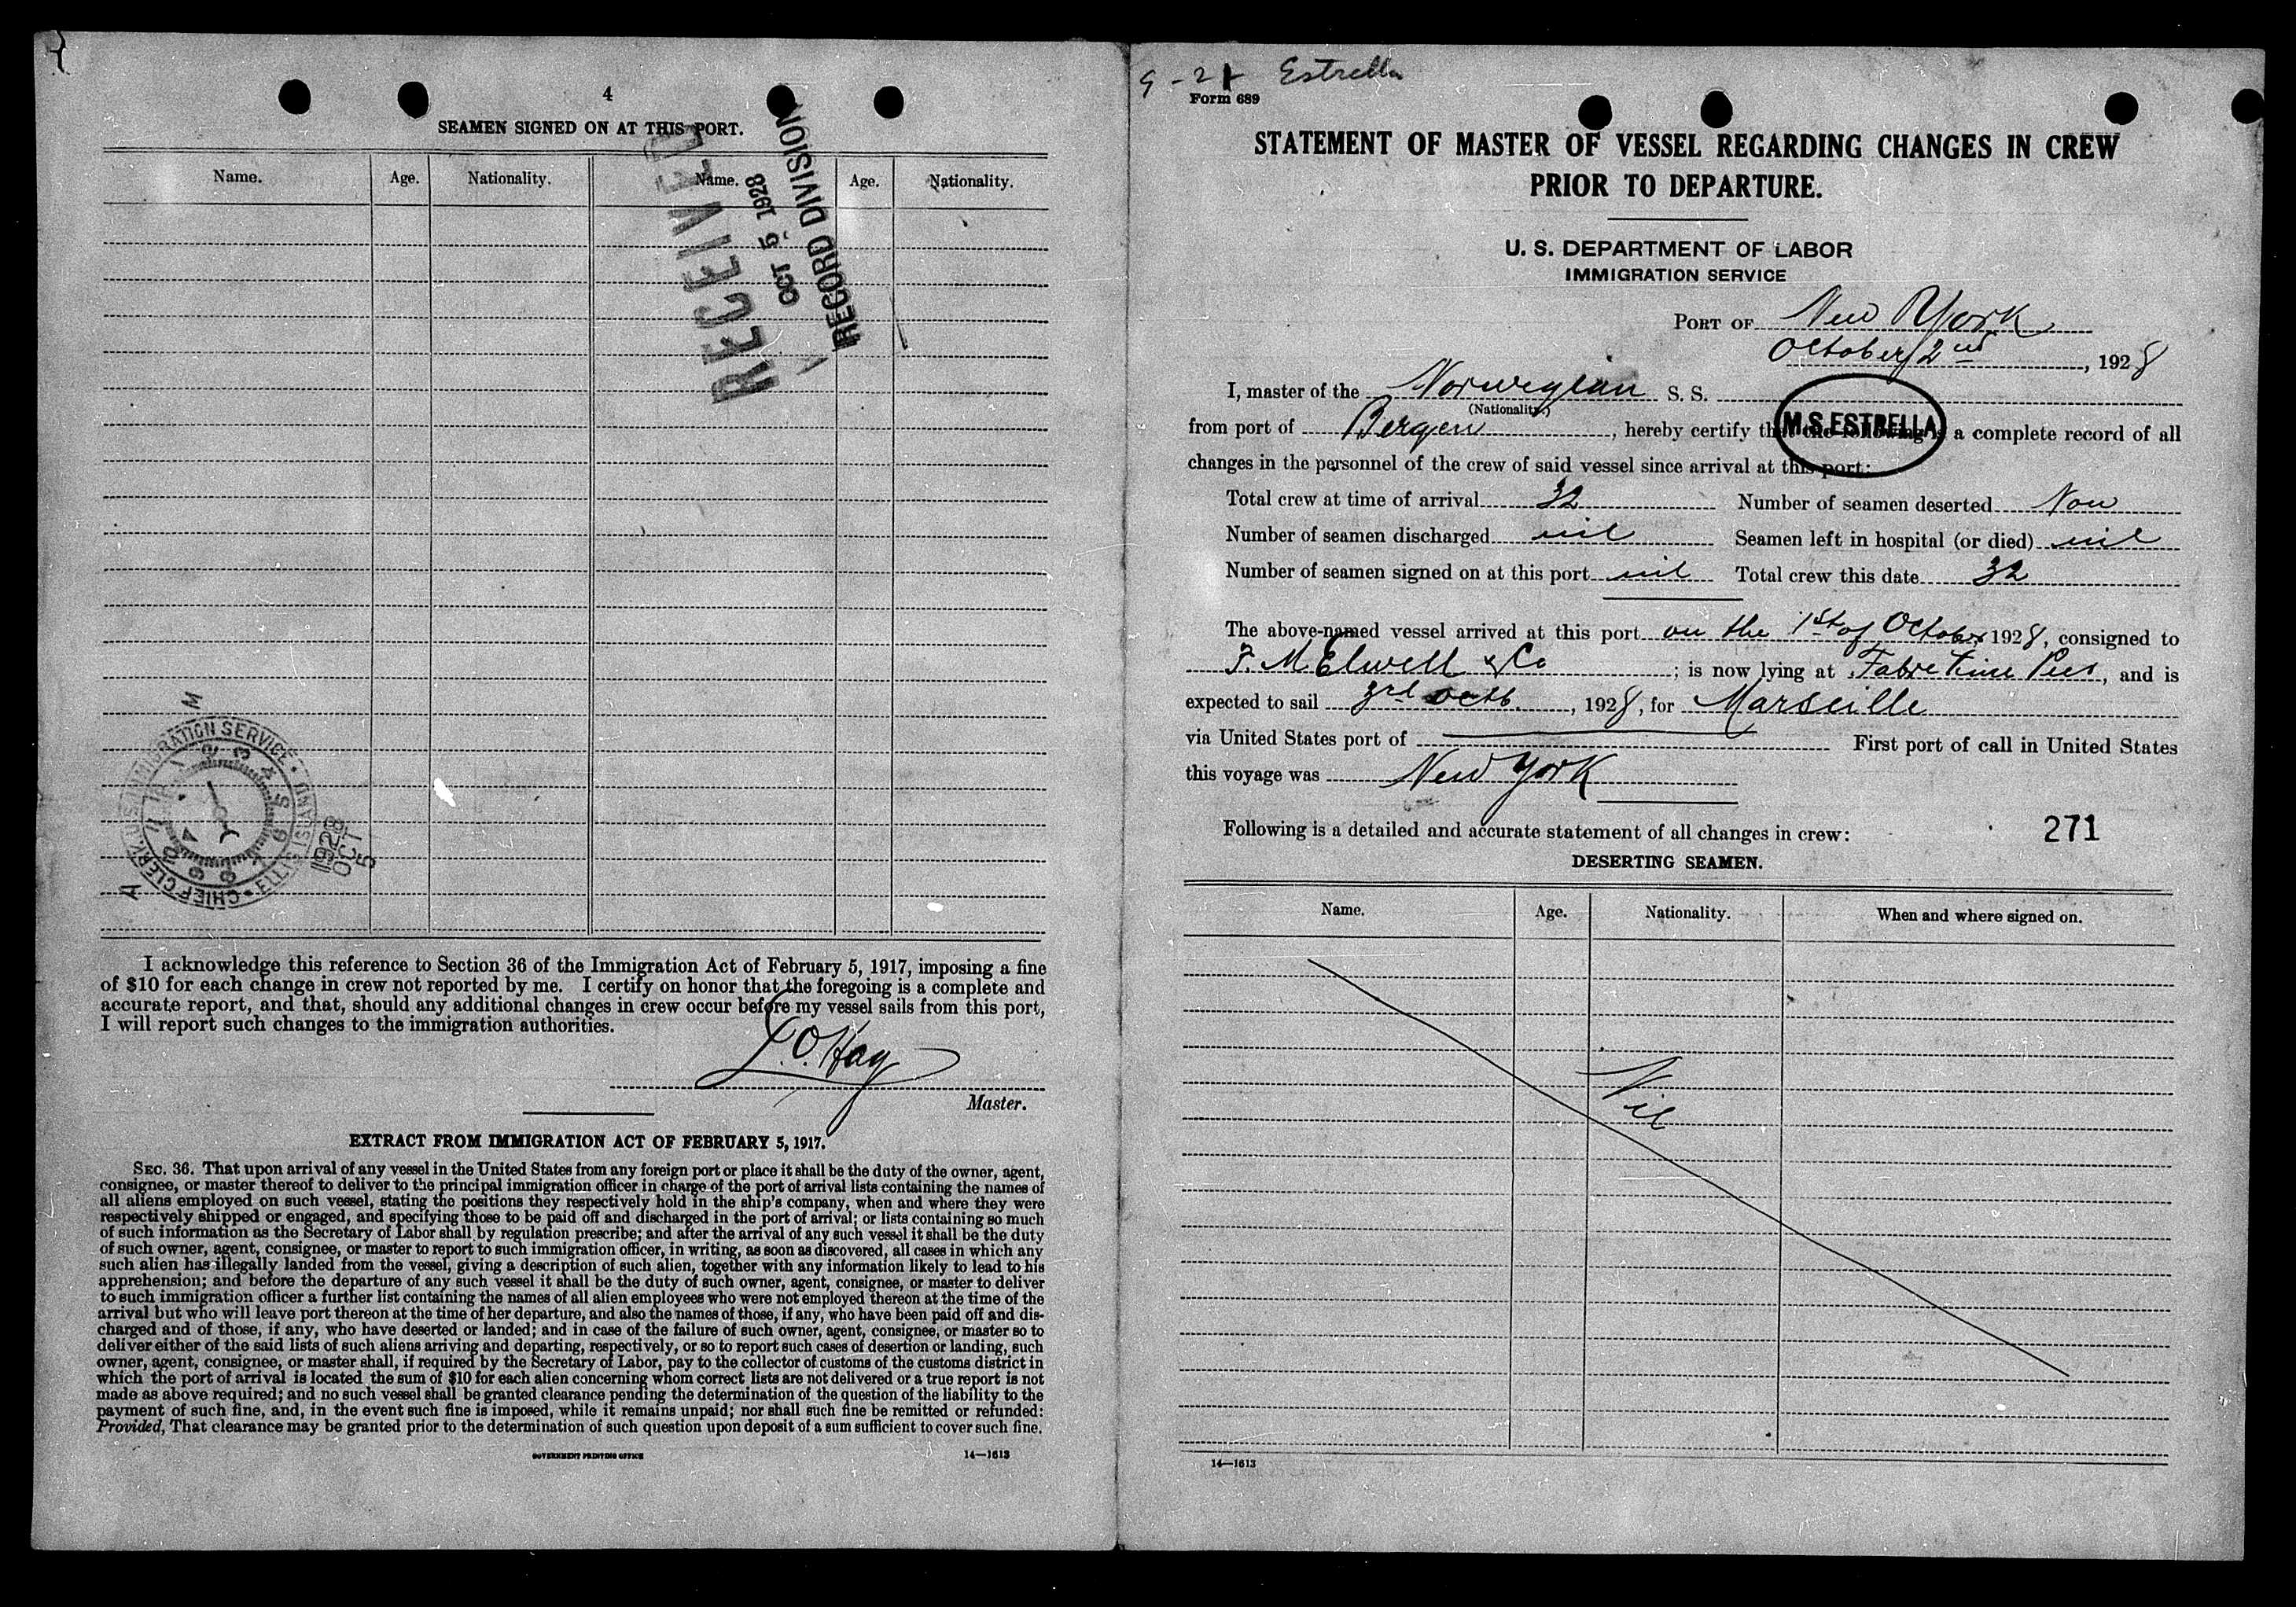 4
SEAMEN SIGNED ON AT THIS PORT.
Name. Age. Nationality. Name. Age. Nationality.
RECEIVED
OCT 5 1928
RECORD DIVISION
CHIEF CLERK. U.S. IMMIGRATION SERVICE. ELLIS ISLAND
1928
OCT
5
I acknowledge this reference to Section 36 of the Immigration Act of February 5, 1917, imposing a fine
of $10 for each change in crew not reported by me. I certify on honor that the foregoing is a complete and
accurate report, and that, should any additional changes in crew occur before my vessel sails from this port,
I will report such changes to the immigration authorities.
Master.
EXTRACT FROM IMMIGRATION ACT OF FEBRUARY 5, 1917.
SEC. 36. That upon arrival of any vessel in the United States from any foreign port or place it shall be the duty of the owner, agent,
consignee, or master thereof to deliver to the principal immigration officer in charge of the port of arrival lists containing the names of
all aliens employed on such vessel, stating the positions they respectively hold in the ship's company, when and where they were
respectively shipped or engaged, and specifying those to be paid off and discharged in the port of arrival; or lists containing so much
of such information as the Secretary of Labor shall by regulation prescribe; and after the arrival of any such vessel it shall be the duty
of such owner, agent, consignee, or master to report to such immigration officer, in writing, as soon as discovered, all cases in which any
such alien has illegally landed from the vessel, giving a description of such alien, together with any information likely to lead to his
apprehension; and before the departure of any such vessel it shall be the duty of such owner, agent, consignee, or master to deliver
to such immigration officer a further list containing the names of all alien employees who were not employed thereon at the time of the
arrival but who will leave port thereon at the time of her departure, and also the names of those, if any, who have been paid off and dis-
charged and of those, if any, who have deserted or landed; and in case of the failure of such owner, agent, consignee, or master so to
deliver either of the said lists of such aliens arriving and departing, respectively, or so to report such cases of desertion or landing, such
owner, agent, consignee, or master shall, if required by the Secretary of Labor, pay to the collector of customs of the customs district in
which the port of arrival is located the sum of $10 for each alien concerning whom correct lists are not delivered or a true report is not
made as above required; and no such vessel shall be granted clearance pending the determination of the question of the liability to the
payment of such fine, and, in the event such fine is imposed, while it remains unpaid; nor shall such fine be remitted or refunded:
Provided, That clearance may be granted prior to the determination of such question upon deposit of a sum sufficient to cover such fine.
GOVERNMENT PRINTING OFFICE 14—1613
Estrella
Form 689
STATEMENT OF MASTER OF VESSEL REGARDING CHANGES IN CREW
PRIOR TO DEPARTURE.
U. S. DEPARTMENT OF LABOR
IMMIGRATION SERVICE
PORT OF New York
October 2nd, 1928
I, master of the Norwegian S. S.
(Nationality.)
M.S. ESTRELLA
from port of Bergen, hereby certify that the following is a complete record of all
changes in the personnel of the crew of said vessel since arrival at this port:
Total crew at time of arrival 32 Number of seamen deserted Non
Number of seamen discharged nil Seamen left in hospital (or died) nil
Number of seamen signed on at this port nil Total crew this date 32
The above-named vessel arrived at this port on the 1st of October 1928, consigned to
F. M. Elwell & Co; is now lying at Fabre Line Pier, and is
expected to sail 3rd Octb., 1928, for Marseille
via United States port of First port of call in United States
this voyage was New York
Following is a detailed and accurate statement of all changes in crew: 271
DESERTING SEAMEN.
Name. Age. Nationality. When and where signed on.
Nil
14—1613